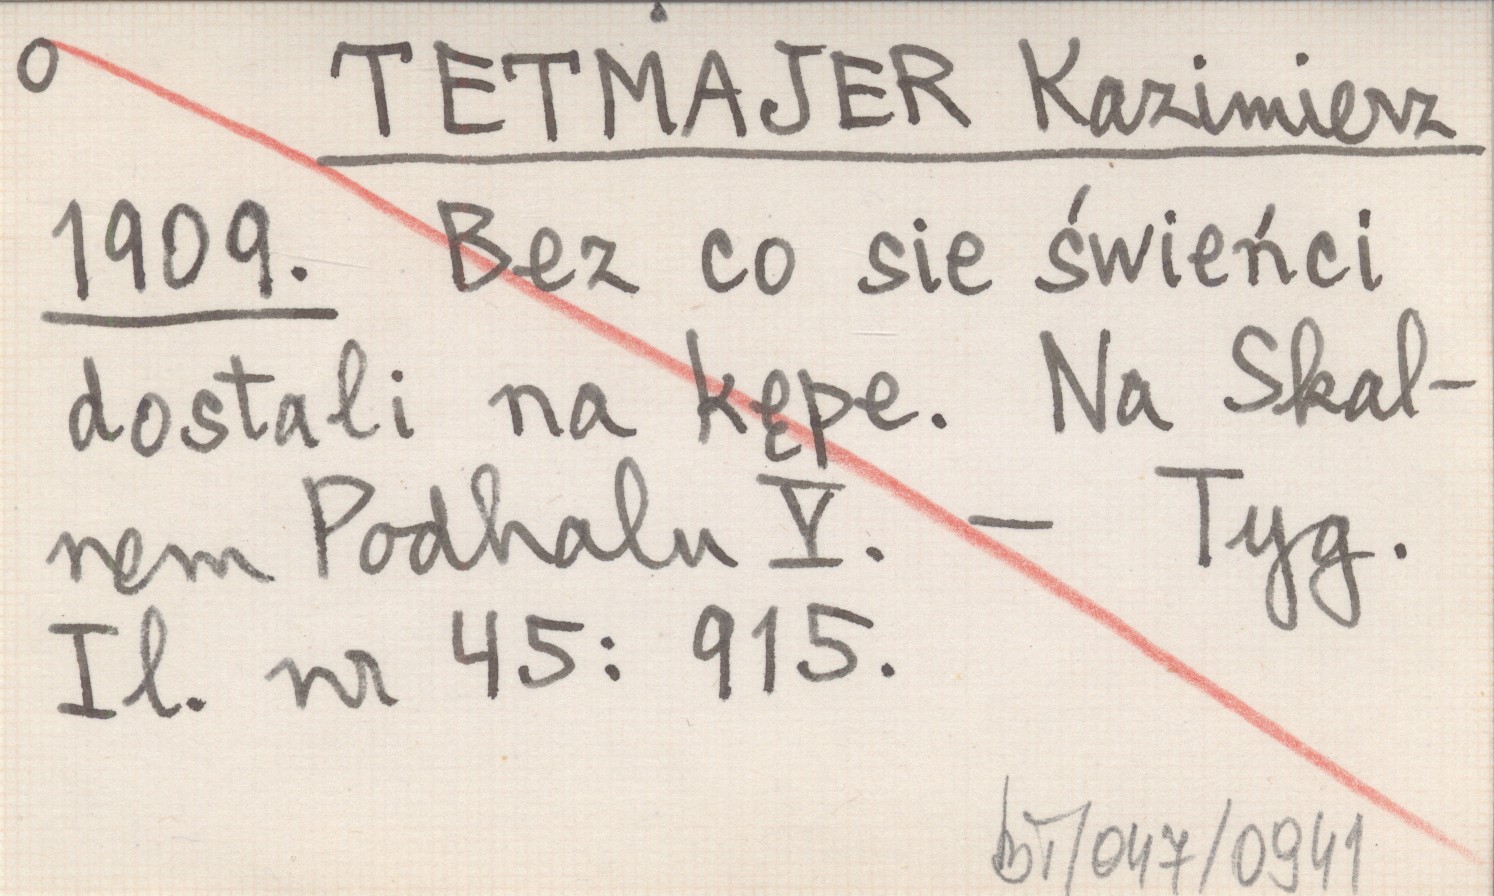 O TETMAJER Kazimierz
1909. Bez co sie świeńci
dostali na kępe. Na Skal-
nem Podhalu V. — Tyg.
Il. nr 45: 915.
bT/047/0941